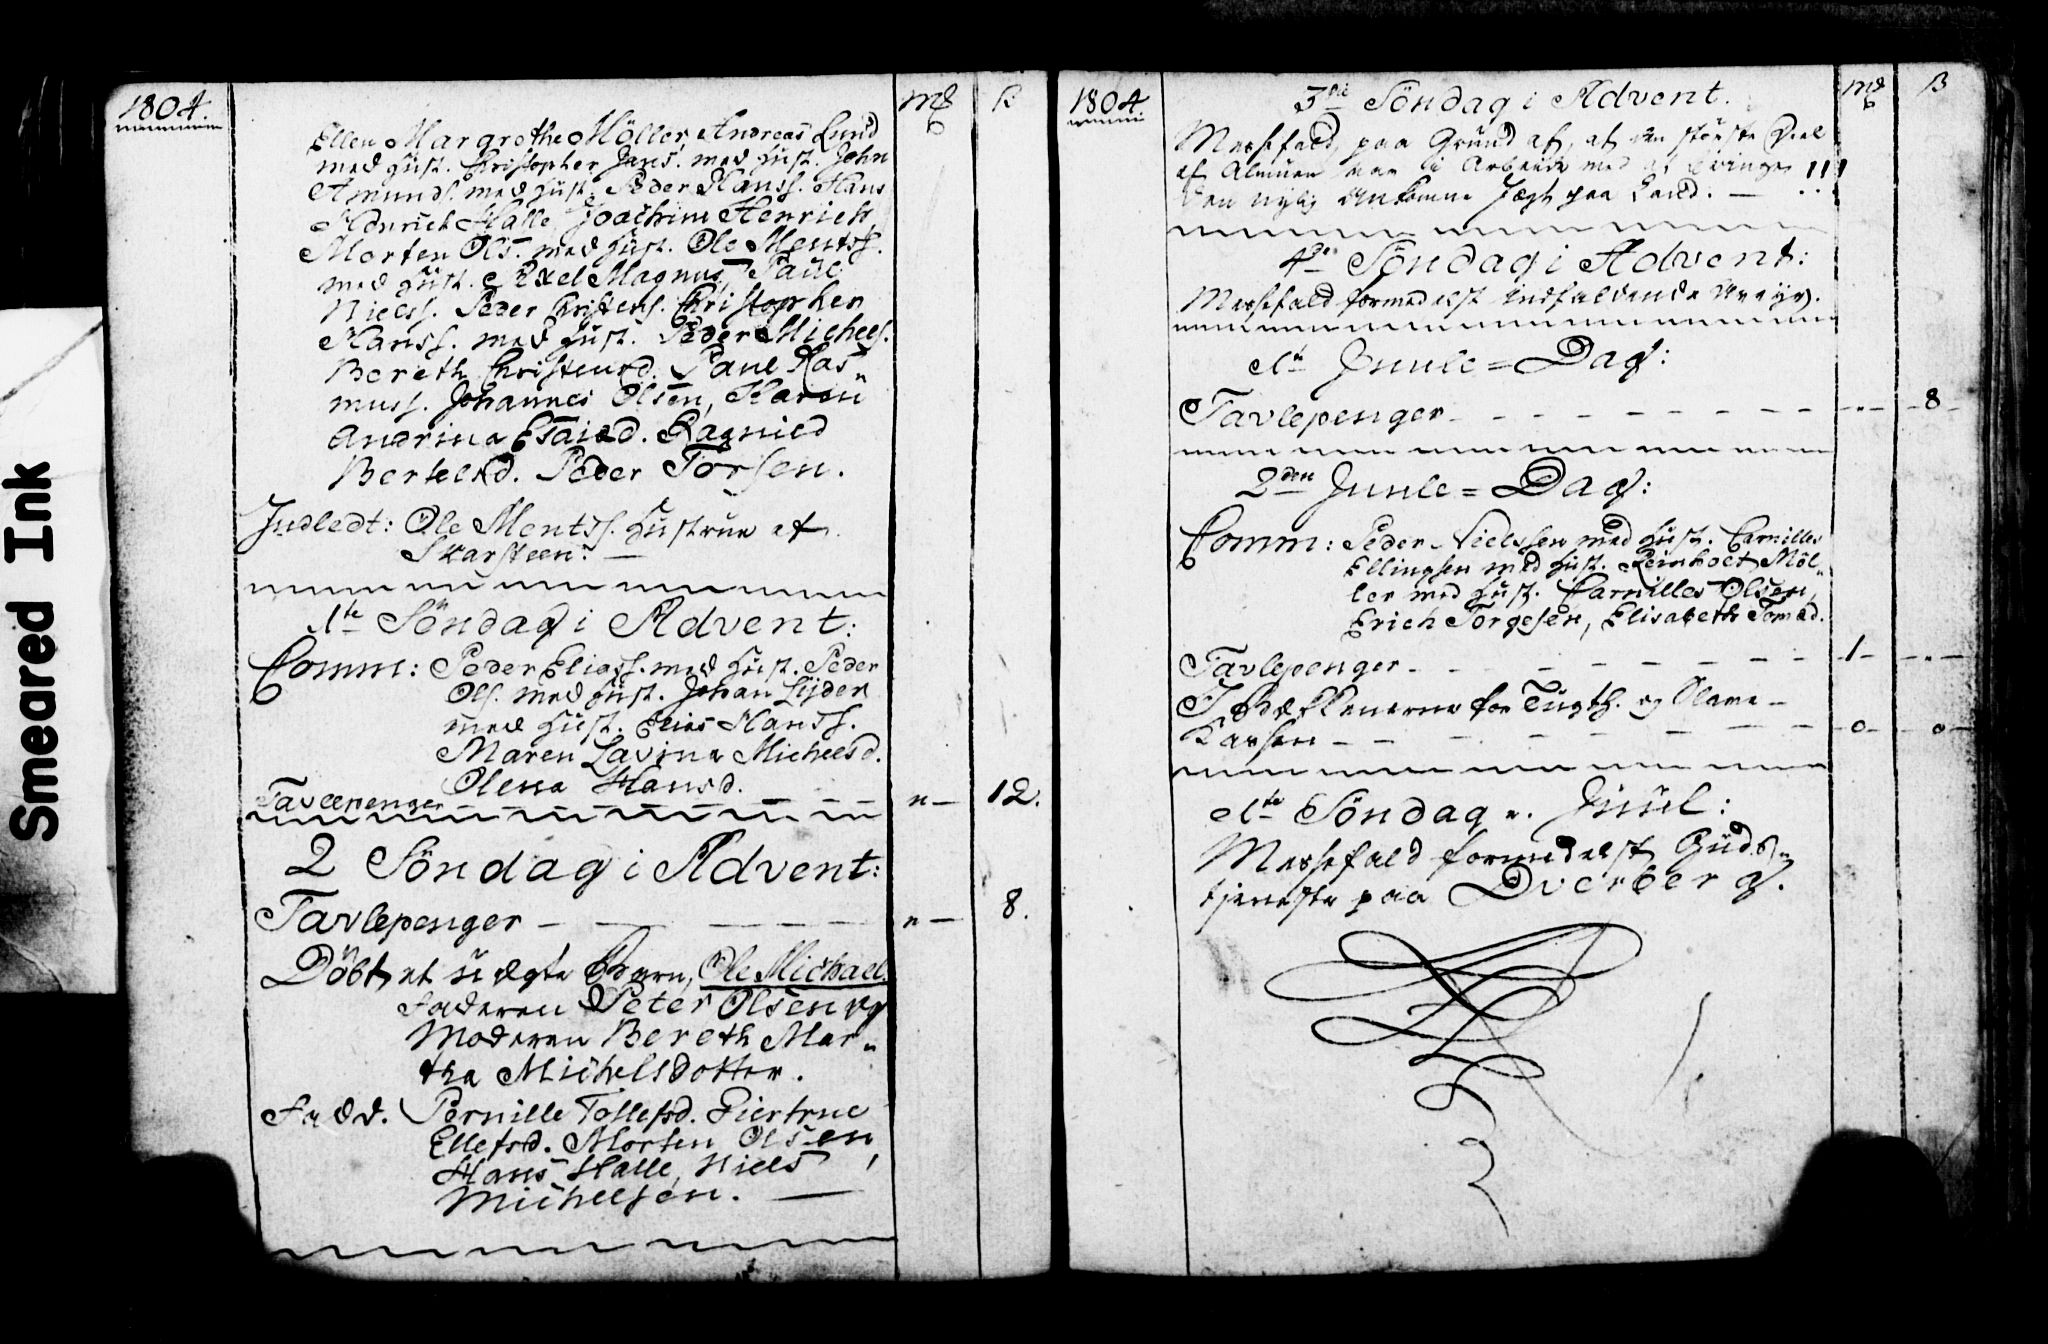 Smeared Ink
1804.
mℓ ß
Ellen Margrethe Möller, Andreas Lund
med Hust. Christopher Jans. med Hust. John
Amunds. med Hust. Peder Hanss. Hans
Hdnrich Halle, Joachim Henrich
Morten Ols. med Hust. Ole Mentss.
med Hust. Axel Magnus, Paul
Nielss. Peder Christens. Christopher
Hanss. med Hust. Peder Michels.
Bereth Christensd. Paul Ras„
muss. Johannes Olsen, Karen
Andrina Esaisd. Ragnild
Bertelsd. Peder Torsen.
Indledt: Ole Mentss. Hustrue af
Skarsteen. —
1te Söndag i Advent:
Comm: Peder Eliass. med Hust. Peder
Ols. med Hust. Johan Lyder
med Hust. Elias Hanss.
Maren Lavina Michelsd.
Olena Hansd.
Tavlepenger — „ — 12.
2 Söndag i Advent:
Tavlepenger — „ — 8.
Döbt et uægte Barn, Ole Michael
Faderen Peter Olsen og
Moderen Bereth Mar„
tha Michelsdotter.
Fadd. Pernille Tollefsd. Giertrue
Ellefsd. Morten Olsen,
Hans Halle, Niels
Michelsen. —
1804
mℓ ß
3die Söndag i Advent.
Messefald, paa Grund af, at den störste Deel
af Almuen var i Arbeide med at bringe !!!
den nylig ankomne Jægt paa Land. —
4de Söndag i Advent:
Messefald formedelst indfaldende Uveir.
1te Juule = Dag:
Tavlepenger - - - „ - 8 -
2den Juule = Dag:
Comm: Peder Nielssen med Hust. Cornilles
Ellingsen med Hust. Reinholt Möl„
ler med Hust. Cornilles Olsen,
Erich Torgesen, Elisabeth Tomasd.
Tavlepenger - - - 1 - „ -
I Bækkenerne for Tugth. og Slave -
Kassen - - - 0 - 0 -
1te Söndag e. Juul:
Messefald formedelst Guds„
tjeneste paa Dverberg.